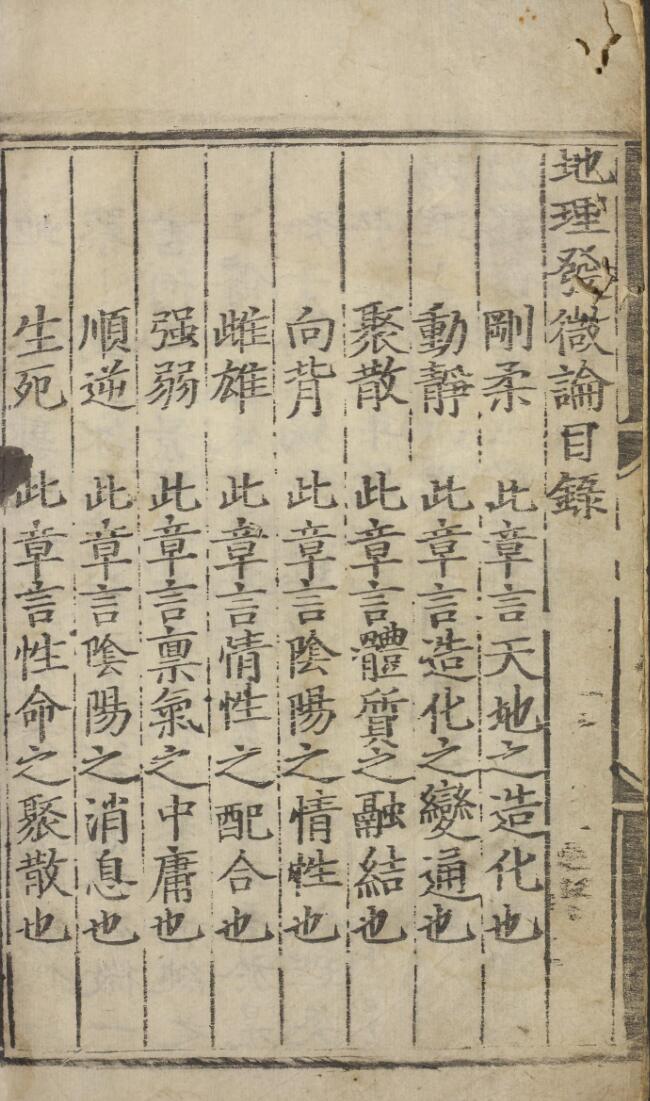 地理發微論目錄
剛柔 此章言天地之造化也
動靜 此章言造化之變通也
聚散 此章言體質之融結也
向背 此章言陰陽之情性也
雌雄 此章言情性之配合也
强弱 此章言稟氣之中庸也
順逆 此章言陰陽之消息也
生死 此章言性命之聚散也